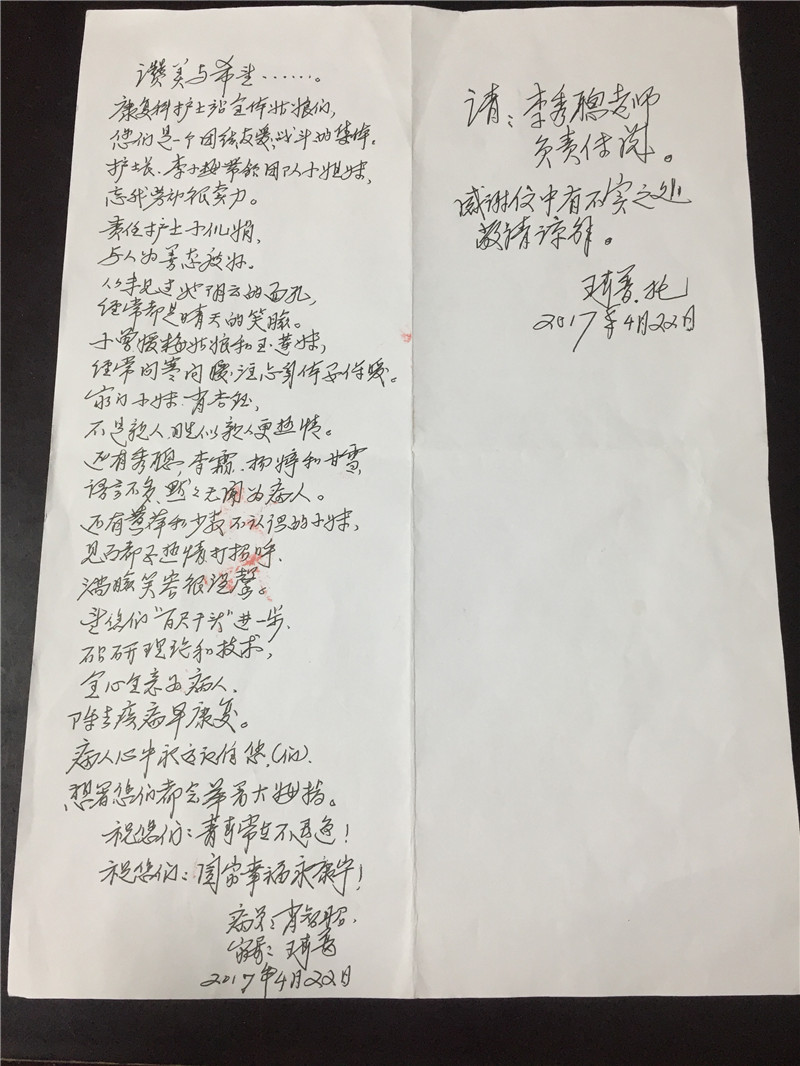 赞美与希望……。
康复科护士站全体姑娘们,
您们是一个团结友爱,战斗的集体。
护士长、李小梅带领团队小姐妹,
忘我劳动很卖力。
责任护士于仉娟,
与人为善态度好。
从未见过她阴云的面孔,
经常都是晴天的笑脸。
小曾媛梅姑娘和玉莲妹,
经常问寒问暖,注意身体要保暖。
家门小妹肖杏钰,
不是亲人胜似亲人更热情。
还有秀聪,李霜、杨婷和甘雪,
语言不多,默々无闻为病人。
还有萍和少数不认识的小妹,
见面都要热情打招呼,
满脸笑容很温馨。
望您们“百尺干头”进一步,
钻研理论和技术,
全心全意为病人,
除去疾病早康复。
病人心中永远记住您(们).
想着您们都会举着大姆指。
祝您们:青春常在不退色!
祝您们:阖家幸福永康宁!
病员:肖智昭,
家属:王
2017年4月22日
请:李秀聪老师
负责传说。
感谢信中有不实之处
敬请谅解。
王 托
2017年4月22日